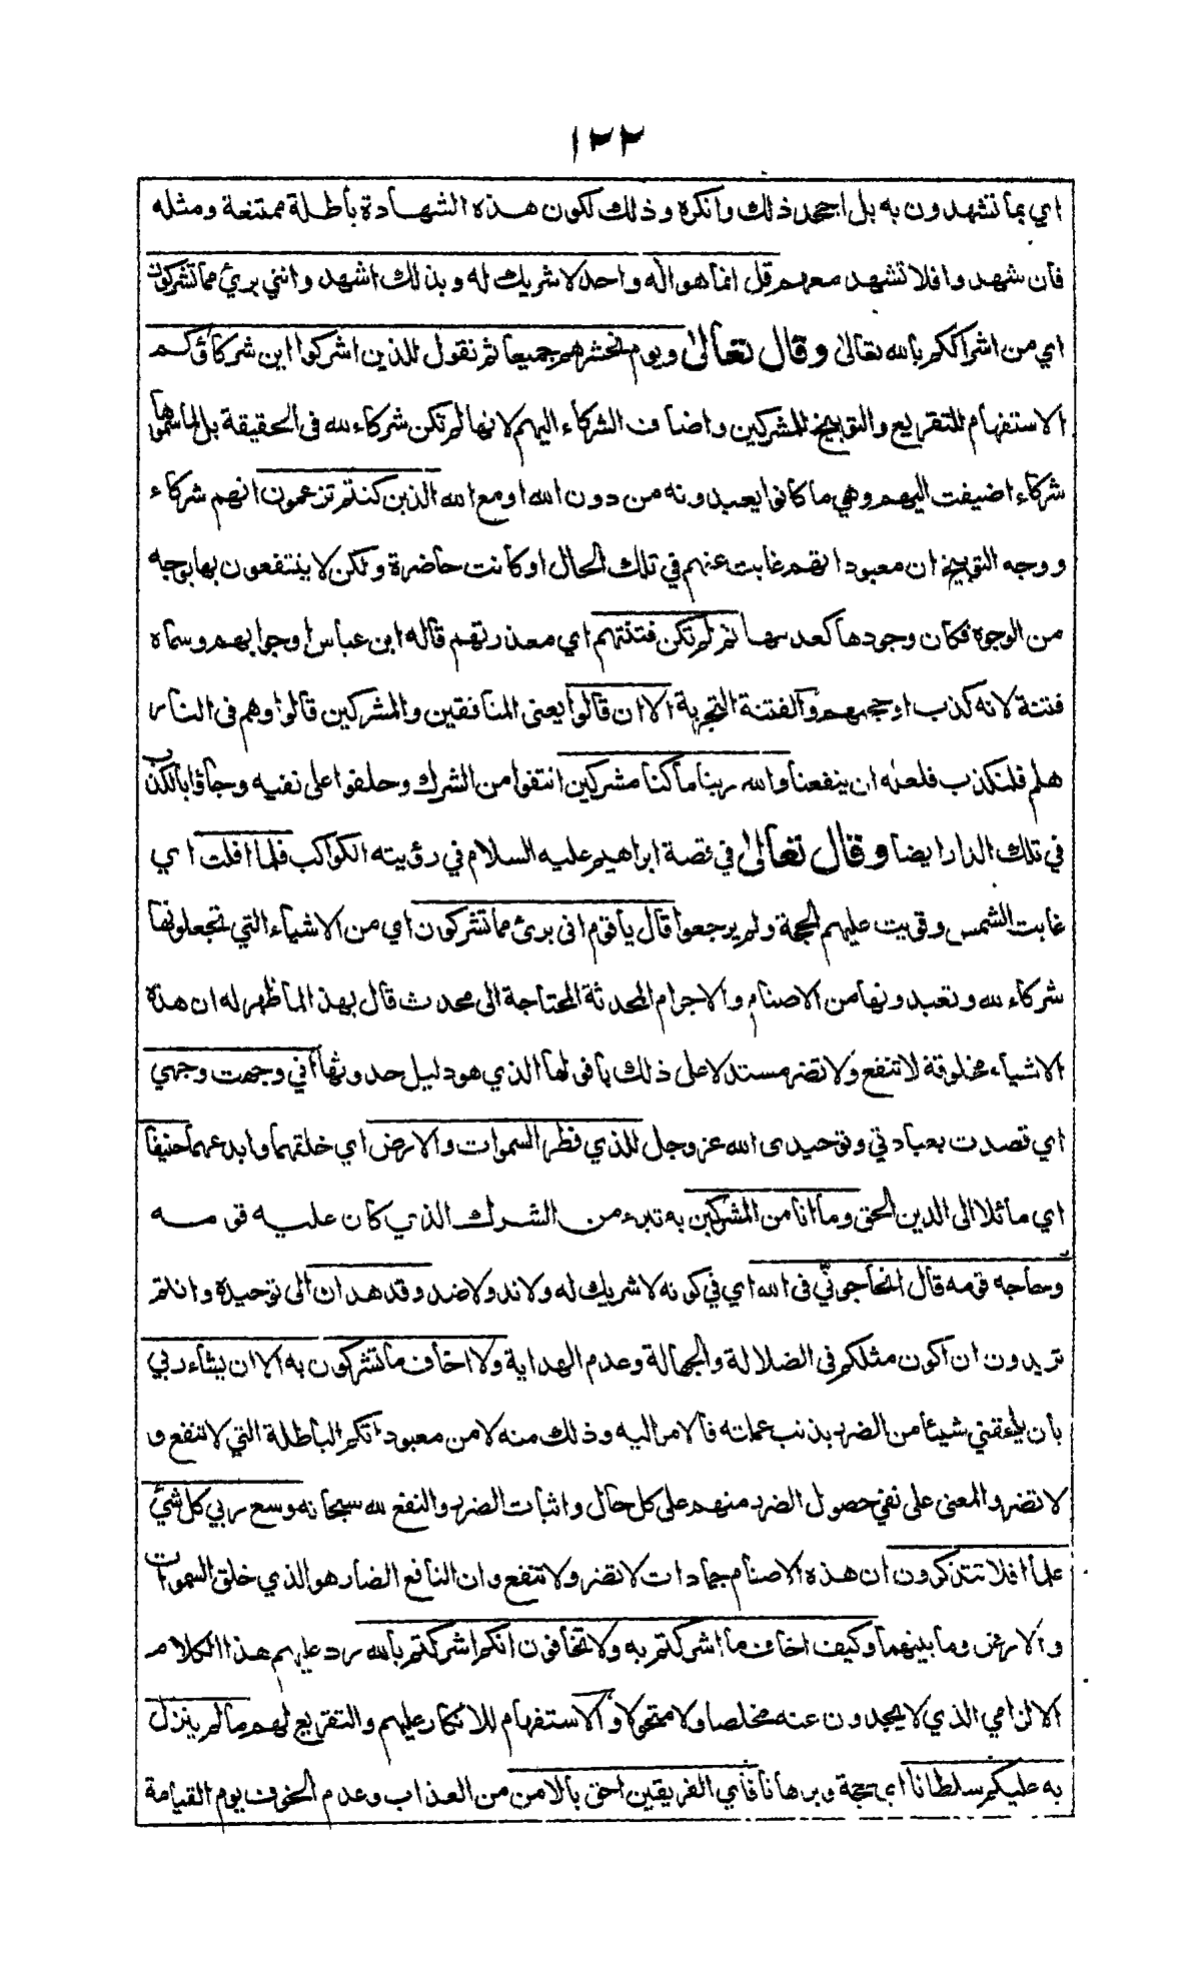 ١٢٢
اي بما تشهدون به بل اجحد ذلك وانكره وذلك لكون هذه الشهادة باطلة ممتنعة ومثله
فان شهدوا فلا تشهد معهم قل انما هو اله واحد لا شريك له وبذلك اشهد وانني بريئ مما تشركون
اي من اشراككم بالله تعالى وقال تعالى ويوم نحشرهم جميعا ثم نقول للذين اشركوا اين شركاؤكم
الاستفهام للتقريع والتوبيخ للمشركين واضاف الشركاء اليهم لانها لم تكن شركاء لله فى الحقيقة بل لما سموها
شركاء اضيفت اليهم وهي ما كانوا يعبدونه من دون الله او مع الله الذين كنتم تزعمون انهم شركاء
ووجه التوبيخ ان معبوداتهم غابت عنهم في تلك الحال او كانت حاضرة ولكن لا ينتفعون بها بوجه
من الوجوه فكان وجودها كعدمها ثم لم تكن فتنتهم اي معذرتهم قاله ابن عباس او جوابهم وسماه
فتنة لانه كذب او حجتهم والفتنة التجربة الا ان قالوا يعنى المنافقين والمشركين قالوا وهم فى النار
هلم فلنكذب فلعله ان ينفعنا والله ربنا ما كنا مشركين انتفوا من الشرك وحلفوا على نفيه وجاؤا بالكذب
في تلك الدار ايضا وقال تعالى في قصة ابراهيم عليه السلام في رؤيته الكواكب فلما افلت اي
غابت الشمس وقويت عليهم الحجة ولم يرجعوا قال يا قوم انى برئ مما تشركون اي من الاشياء التي تجعلونها
شركاء لله وتعبدونها من الاصنام والاجرام المحدثة المحتاجة الى محدث قال بهذا لما ظهر له ان هذه
الاشياء مخلوقة لا تنفع ولا تضر مستدلا على ذلك بافولها الذي هو دليل حدوثها اني وجهت وجهي
اي قصدت بعبادتي وتوحيدى الله عز وجل للذي فطر السموات والارض اي خلقهما وابدعهما حنيفا
اي مائلا الى الدين الحق وما انا من المشركين به تبرء من الشرك الذي كان عليه قومه
وحاجه قومه قال اتحاجونّي فى الله اي في كونه لا شريك له ولا ند ولا ضد وقد هدان الى توحيده وانتم
تريدون ان اكون مثلكم فى الضلالة والجهالة وعدم الهداية ولا اخاف ما تشركون به الا ان يشاء ربي
بان يلحقني شيئا من الضر بذنب عملته فالامر اليه وذلك منه لا من معبوداتكم الباطلة التي لا تنفع و
لا تضر والمعنى على نفي حصول الضر منهم على كل حال واثبات الضر والنفع لله سبحانه وسع ربي كل شيئ
علما افلا تتذكرون ان هذه الاصنام جمادات لا تضر ولا تنفع وان النافع الضار هو الذي خلق السموات
والارض وما بينهما وكيف اخاف ما اشركتم به ولا تخافون انكم اشركتم بالله رد عليهم هذا الكلام
الالزامي الذي لا يجدون عنه مخلصا ولا متحولا والاستفهام للانكار عليهم والتقريع لهم ما لم ينزل
به عليكم سلطانا اي حجة وبرهانا فاي الفريقين احق بالامن من العذاب وعدم الخوف يوم القيامة